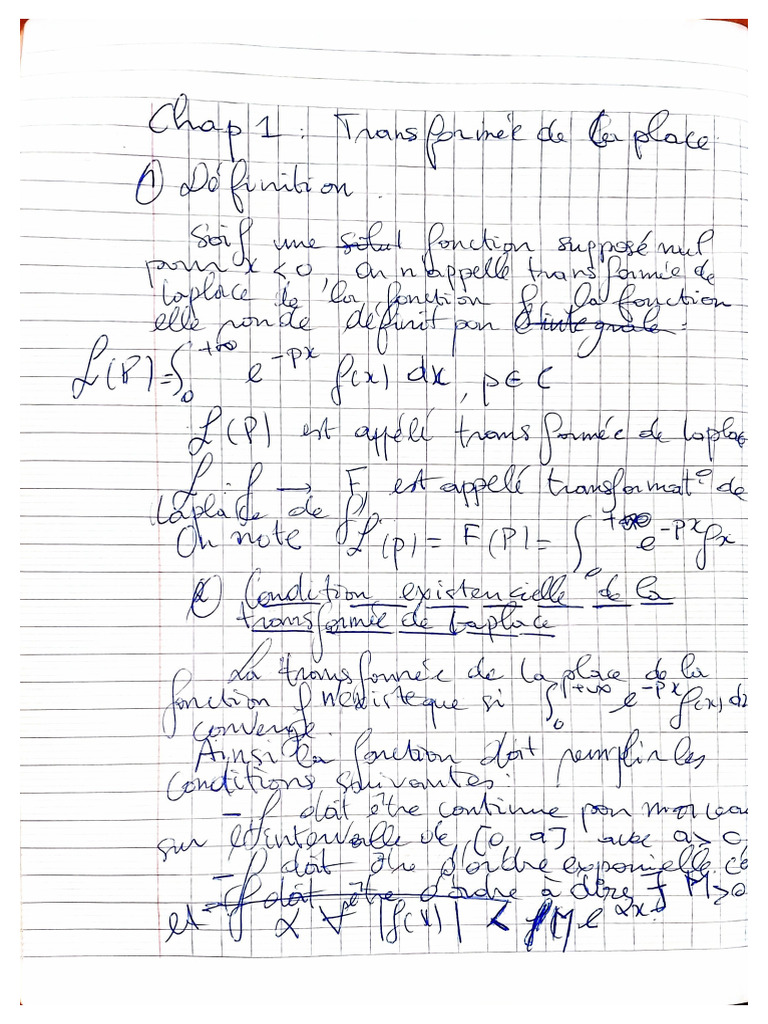 Chap 1 : Transformée de la place
① Définition.
Soit f une fonction supposé nul
pour x < 0, On n'appelle transformée de
Laplace de la fonction f la fonction
elle ronde définit par l'intégrale :
L(P) = ∫₀^{+∞} e^{-px} f(x) dx, p ∈ C
L(P) est appélé transformée de laplac
L : f → F est appelé transformat° de
Laplace de f
On note L(p) = F(P) = ∫₀^{+∞} e^{-px} fx
② Condition existencielle de la
transformée de Laplace
La transformée de la place de la
fonction f n'existe que si ∫₀^{+∞} e^{-px} f(x) dx
converge.
Ainsi la fonction doit remplir les
conditions suivantes :
- f doit être continue par morceau
sur l'intervalle de [0, a] avec a >
- f doit être d'ordre exponielle
f doit être d'ordre à dire ∃ M>0
et α ∀ |f(x)| < M e^{αx}